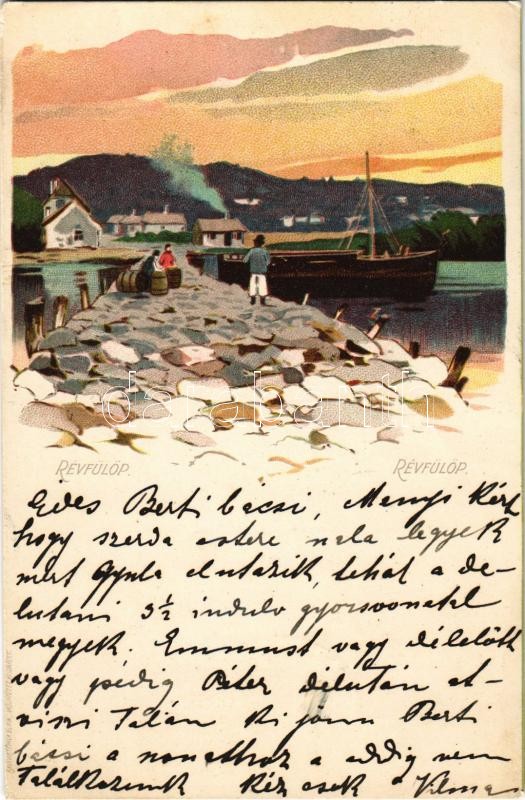 RÉVFÜLÖP. RÉVFÜLÖP.
darabanth
Edes Berti bacsi, Manyi kért
hogy szerda estere nala legyek
mert Gyula elutazik, tehát a de-
lutani 3½ indulo gyorsvonatal
megyek. Emmust vagy délelött
vagy pédig Péter délután et-
viszi Talán ki jönn Berti
bacsi a vonathoz a addig nem
Találkozunk Kéz csok Vilma